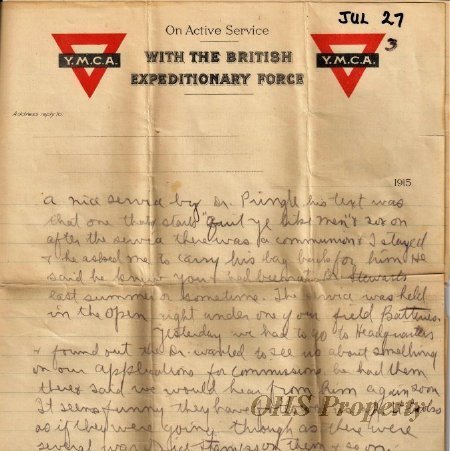 JUL 27
3
On Active Service
WITH THE BRITISH
EXPEDITIONARY FORCE
Y.M.C.A.
Y.M.C.A.
Address reply to:
1915
a nice service by Dr. Pringle his text was
that one that starts "quit ye like men" & so on
after the service there was a communion & I stayed
& he asked me to carry his bag back for him. He
said he knew you & had been at Stewarts
last summer or sometime. The service was held
in the open right under one of our field Batteries
Yesterday we had to go to Headquarters
& found out the Dr. wanted to see us about something
on our applications for commissions he had them
there & said we would hear from him again soon
It seems funny they have
as if they were going through as there were
several stamps on them & so on
OHS Property